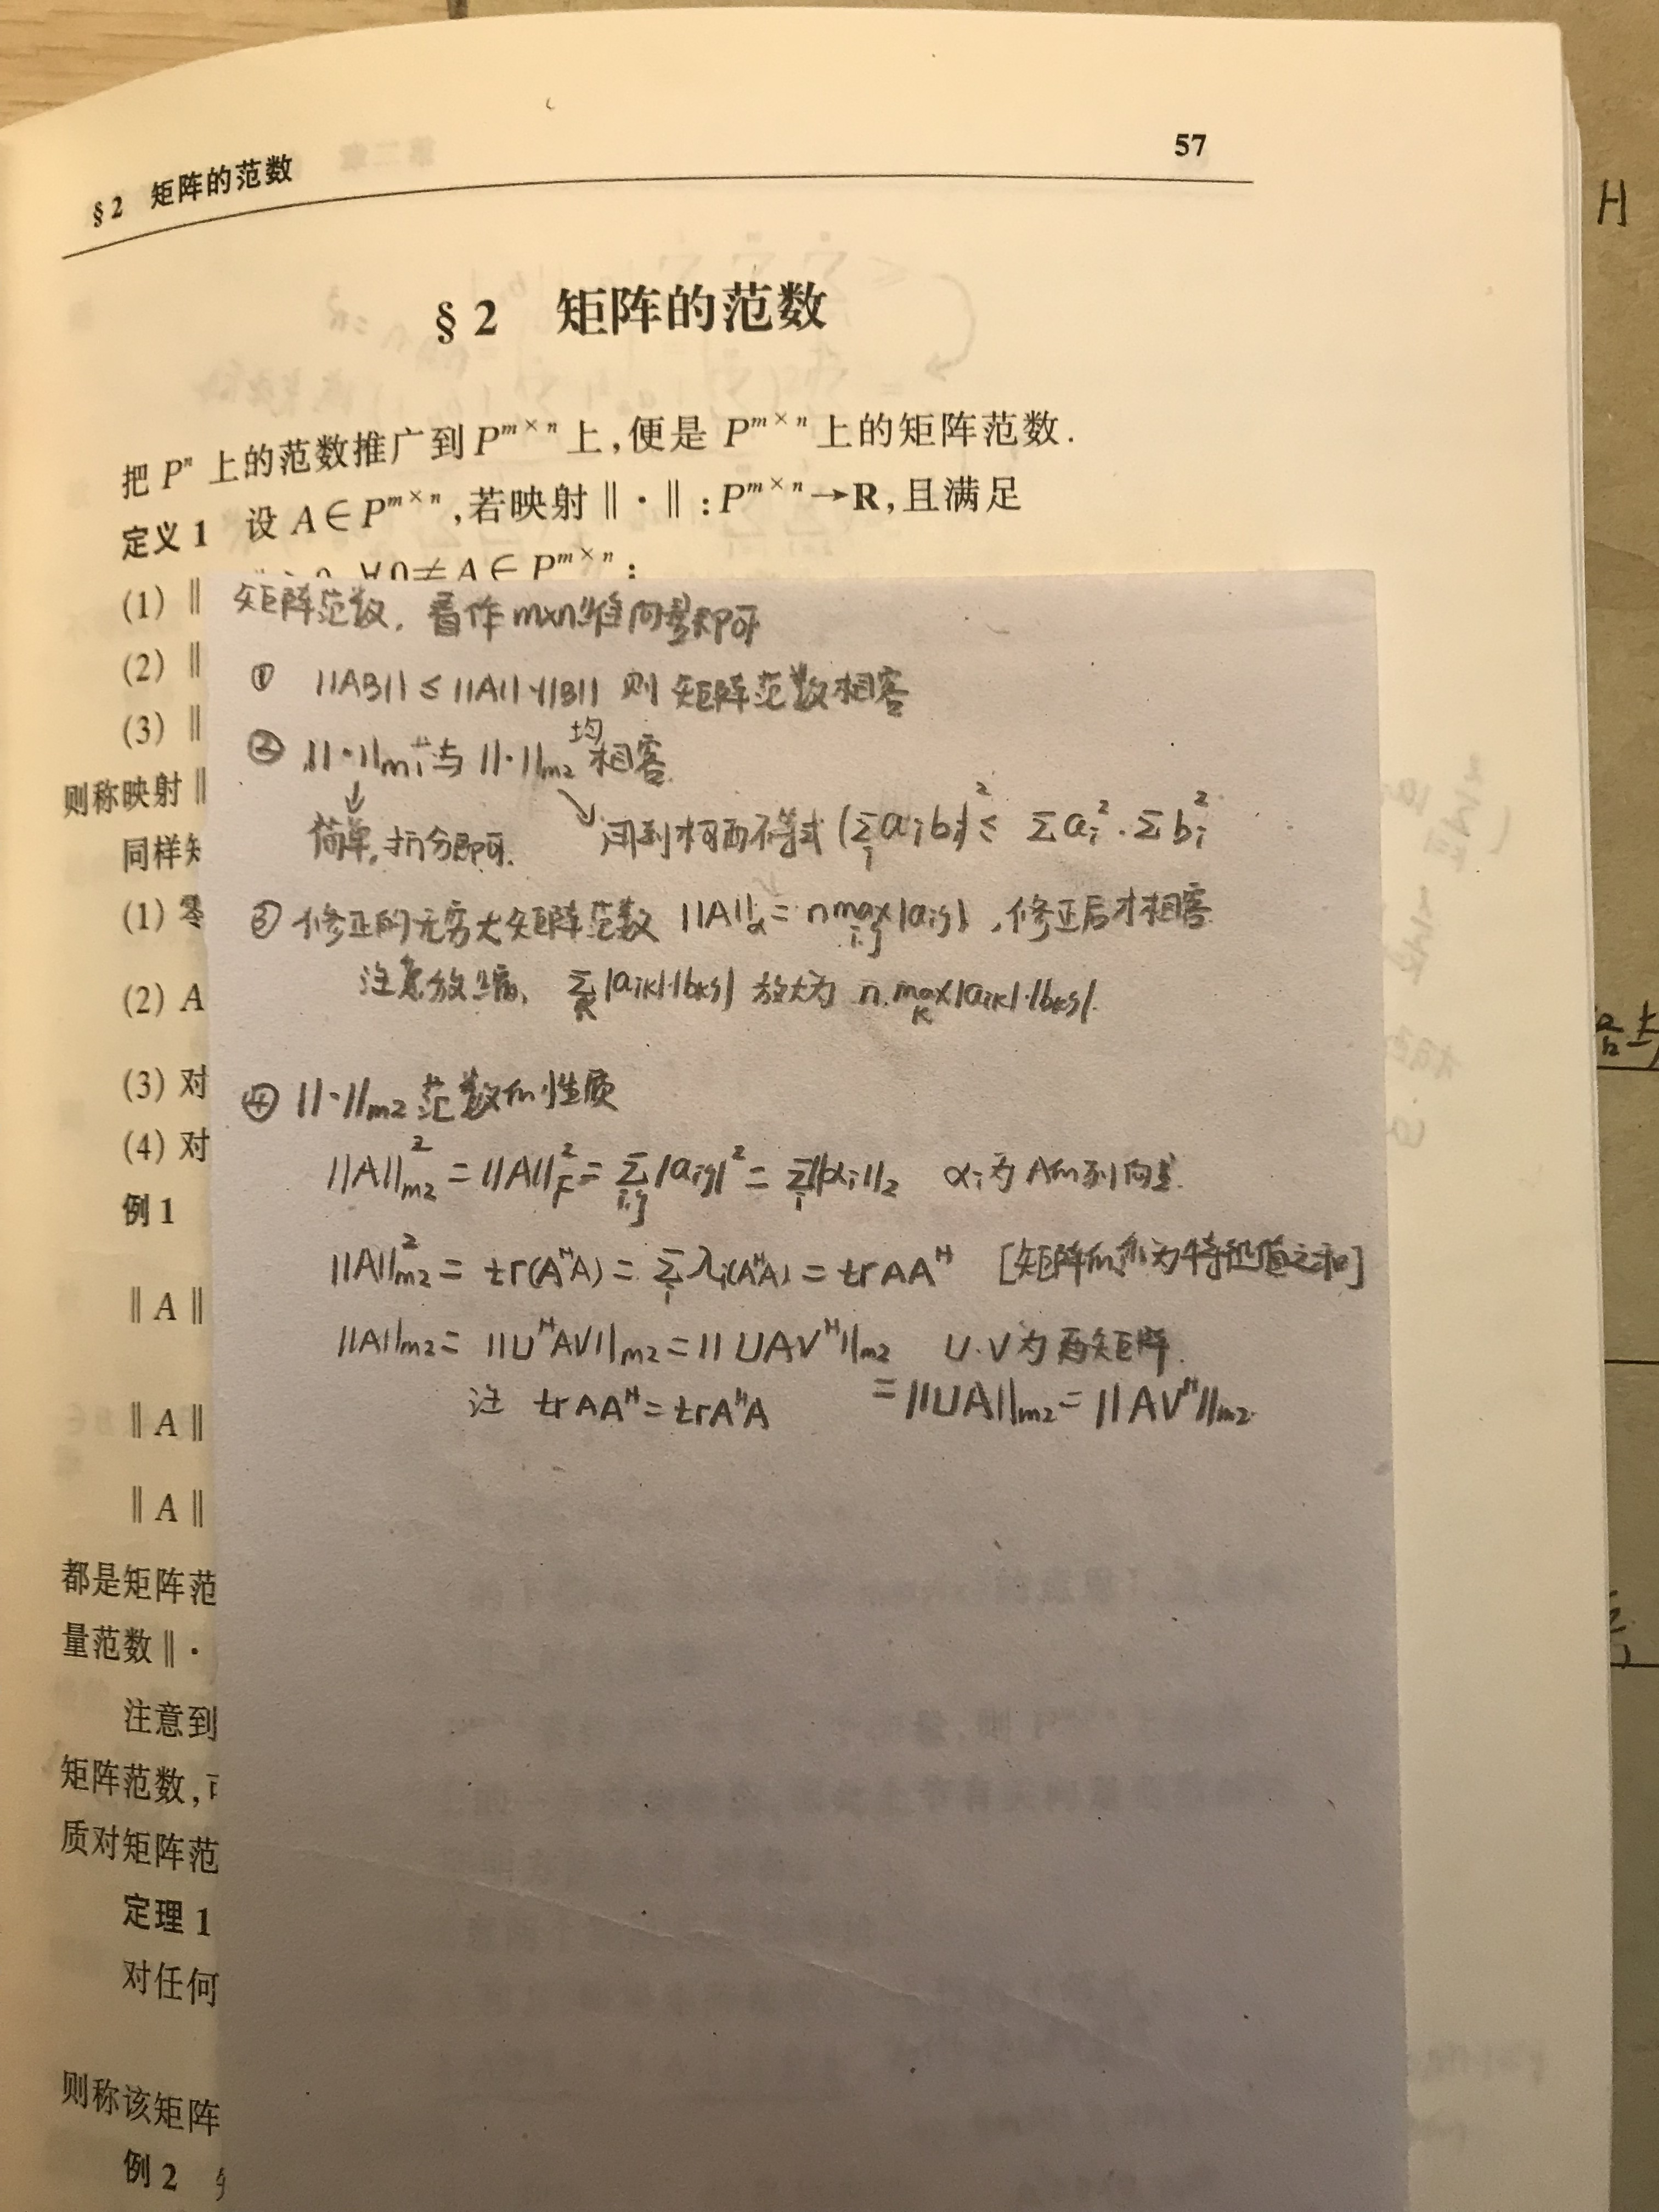 §2 矩阵的范数
57
§2 矩阵的范数
把 Pⁿ 上的范数推广到 Pᵐˣⁿ 上,便是 Pᵐˣⁿ 上的矩阵范数.
定义1 设 A∈Pᵐˣⁿ,若映射‖·‖:Pᵐˣⁿ→R,且满足
(1) ‖ >0, ∀0≠A∈Pᵐˣⁿ;
(2) ‖
(3) ‖
则称映射‖
同样
(1) 零
(2) A
(3) 对
(4) 对
例1
‖A‖
‖A‖
‖A‖
都是矩阵范
量范数‖·
注意到
矩阵范数,
质对矩阵范
定理1
对任何
则称该矩阵
例2
矩阵范数, 看作m×n维向量即可
① ||AB|| ≤ ||A||·||B|| 则 矩阵范数相容
② ||·||m₁ 与 ||·||m₂ 均相容.
↓ 简单, 拆分即可. ↘ 用到柯西不等式 (Σᵢ aᵢbᵢ)² ≤ Σaᵢ²·Σbᵢ²
③ 修正的无穷大矩阵范数 ||A||α = n max_{i,j}|aij| , 修正后才相容.
注意放缩, Σₖ|aik|·|bkj| 放大为 n.maxₖ|aik|·|bkj|.
④ ||·||m₂ 范数的性质
||A||²m₂ = ||A||²F = Σ_{i,j}|aij|² = Σᵢ||αᵢ||₂ αᵢ为A的列向量.
||A||²m₂ = tr(AᴴA) = Σᵢ λᵢ(AᴴA) = trAAᴴ [矩阵的迹为特征值之和]
||A||m₂ = ||UᴴAV||m₂ = ||UAVᴴ||m₂ U.V为酉矩阵.
注 trAAᴴ = trAᴴA = ||UA||m₂ = ||AVᴴ||m₂.
H